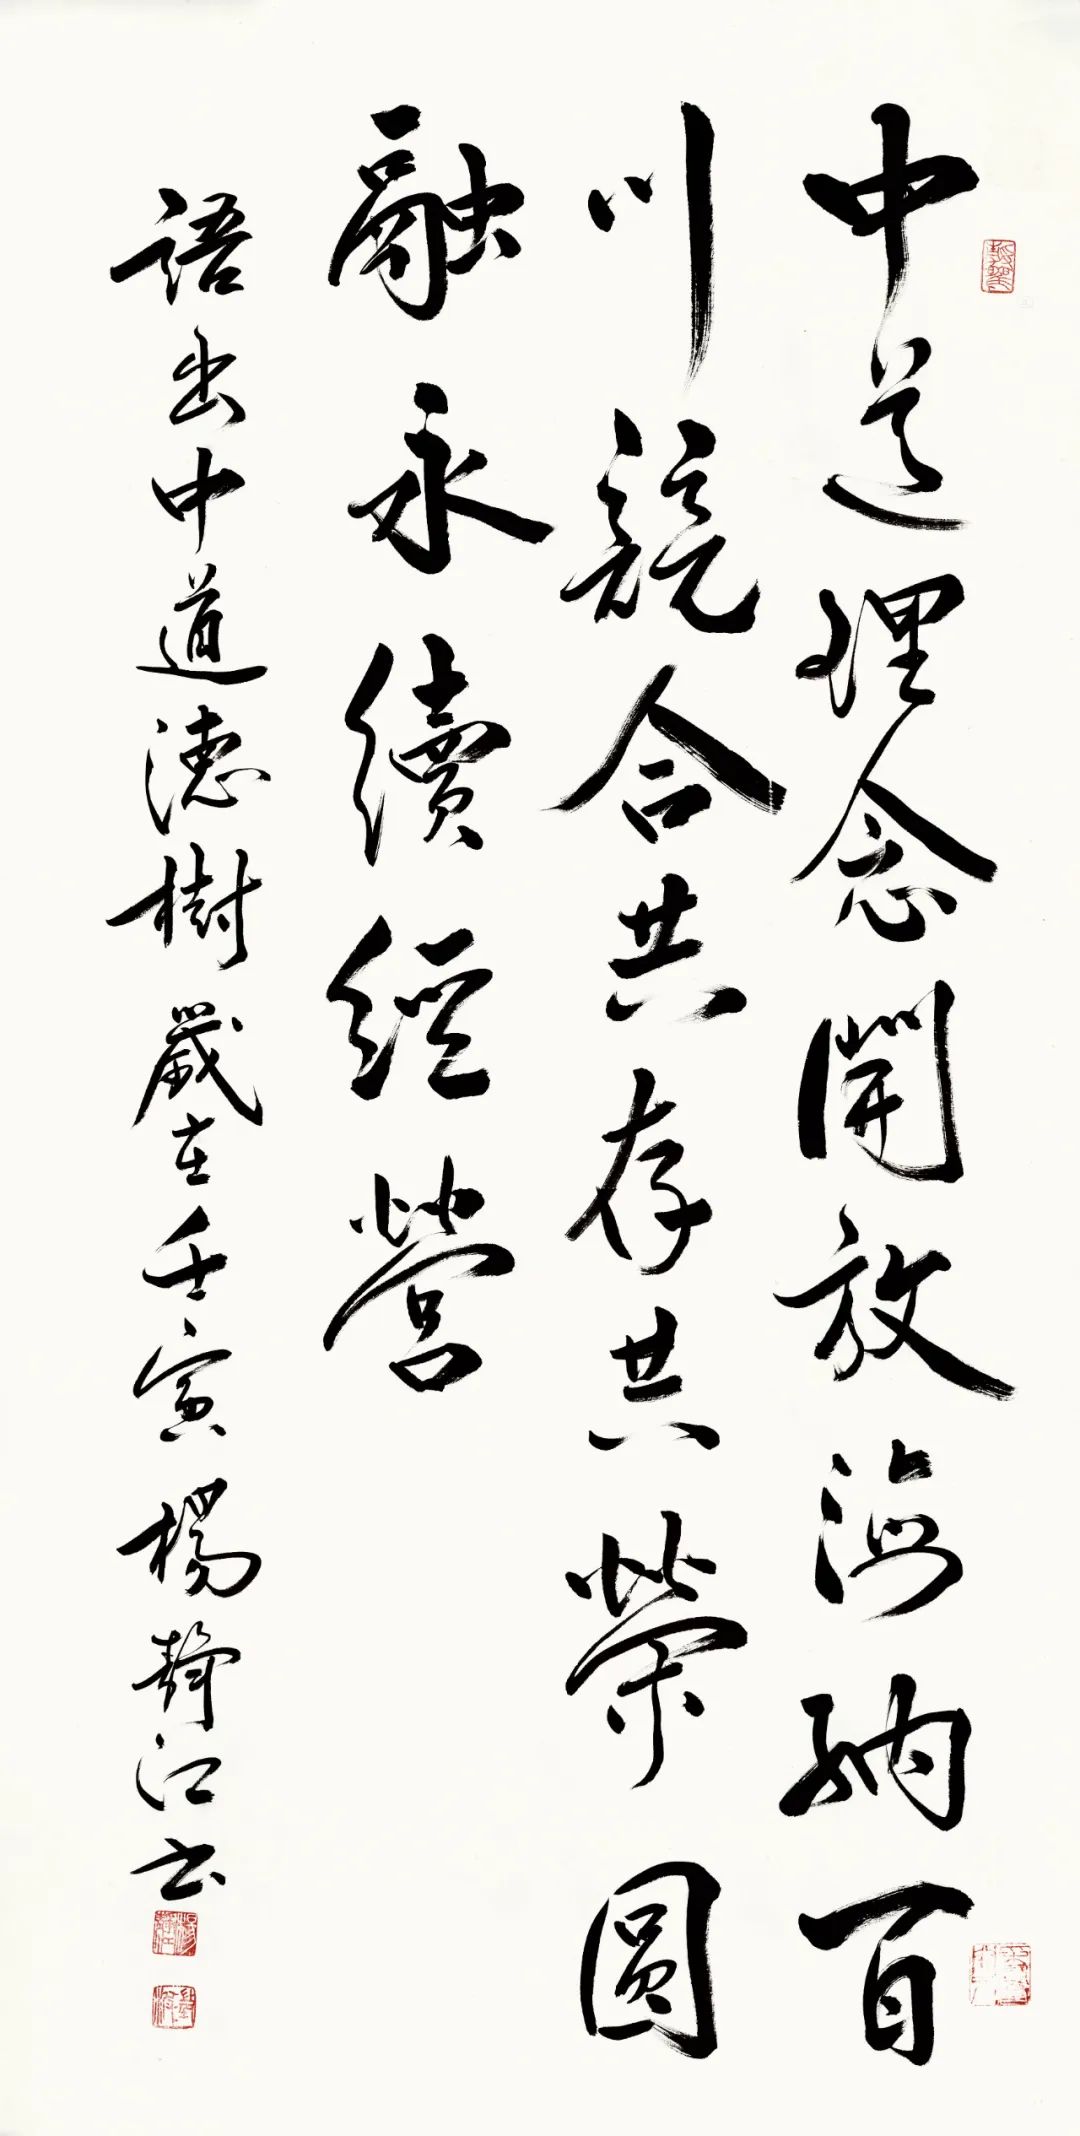 中道理念開放海納百
川競合共存共榮圓
融永續經營
語出中道德樹歲在壬寅楊靜江書